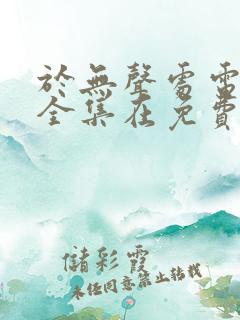 於無聲處電
全集在免費
儲彩霞
未經同意禁止轉載